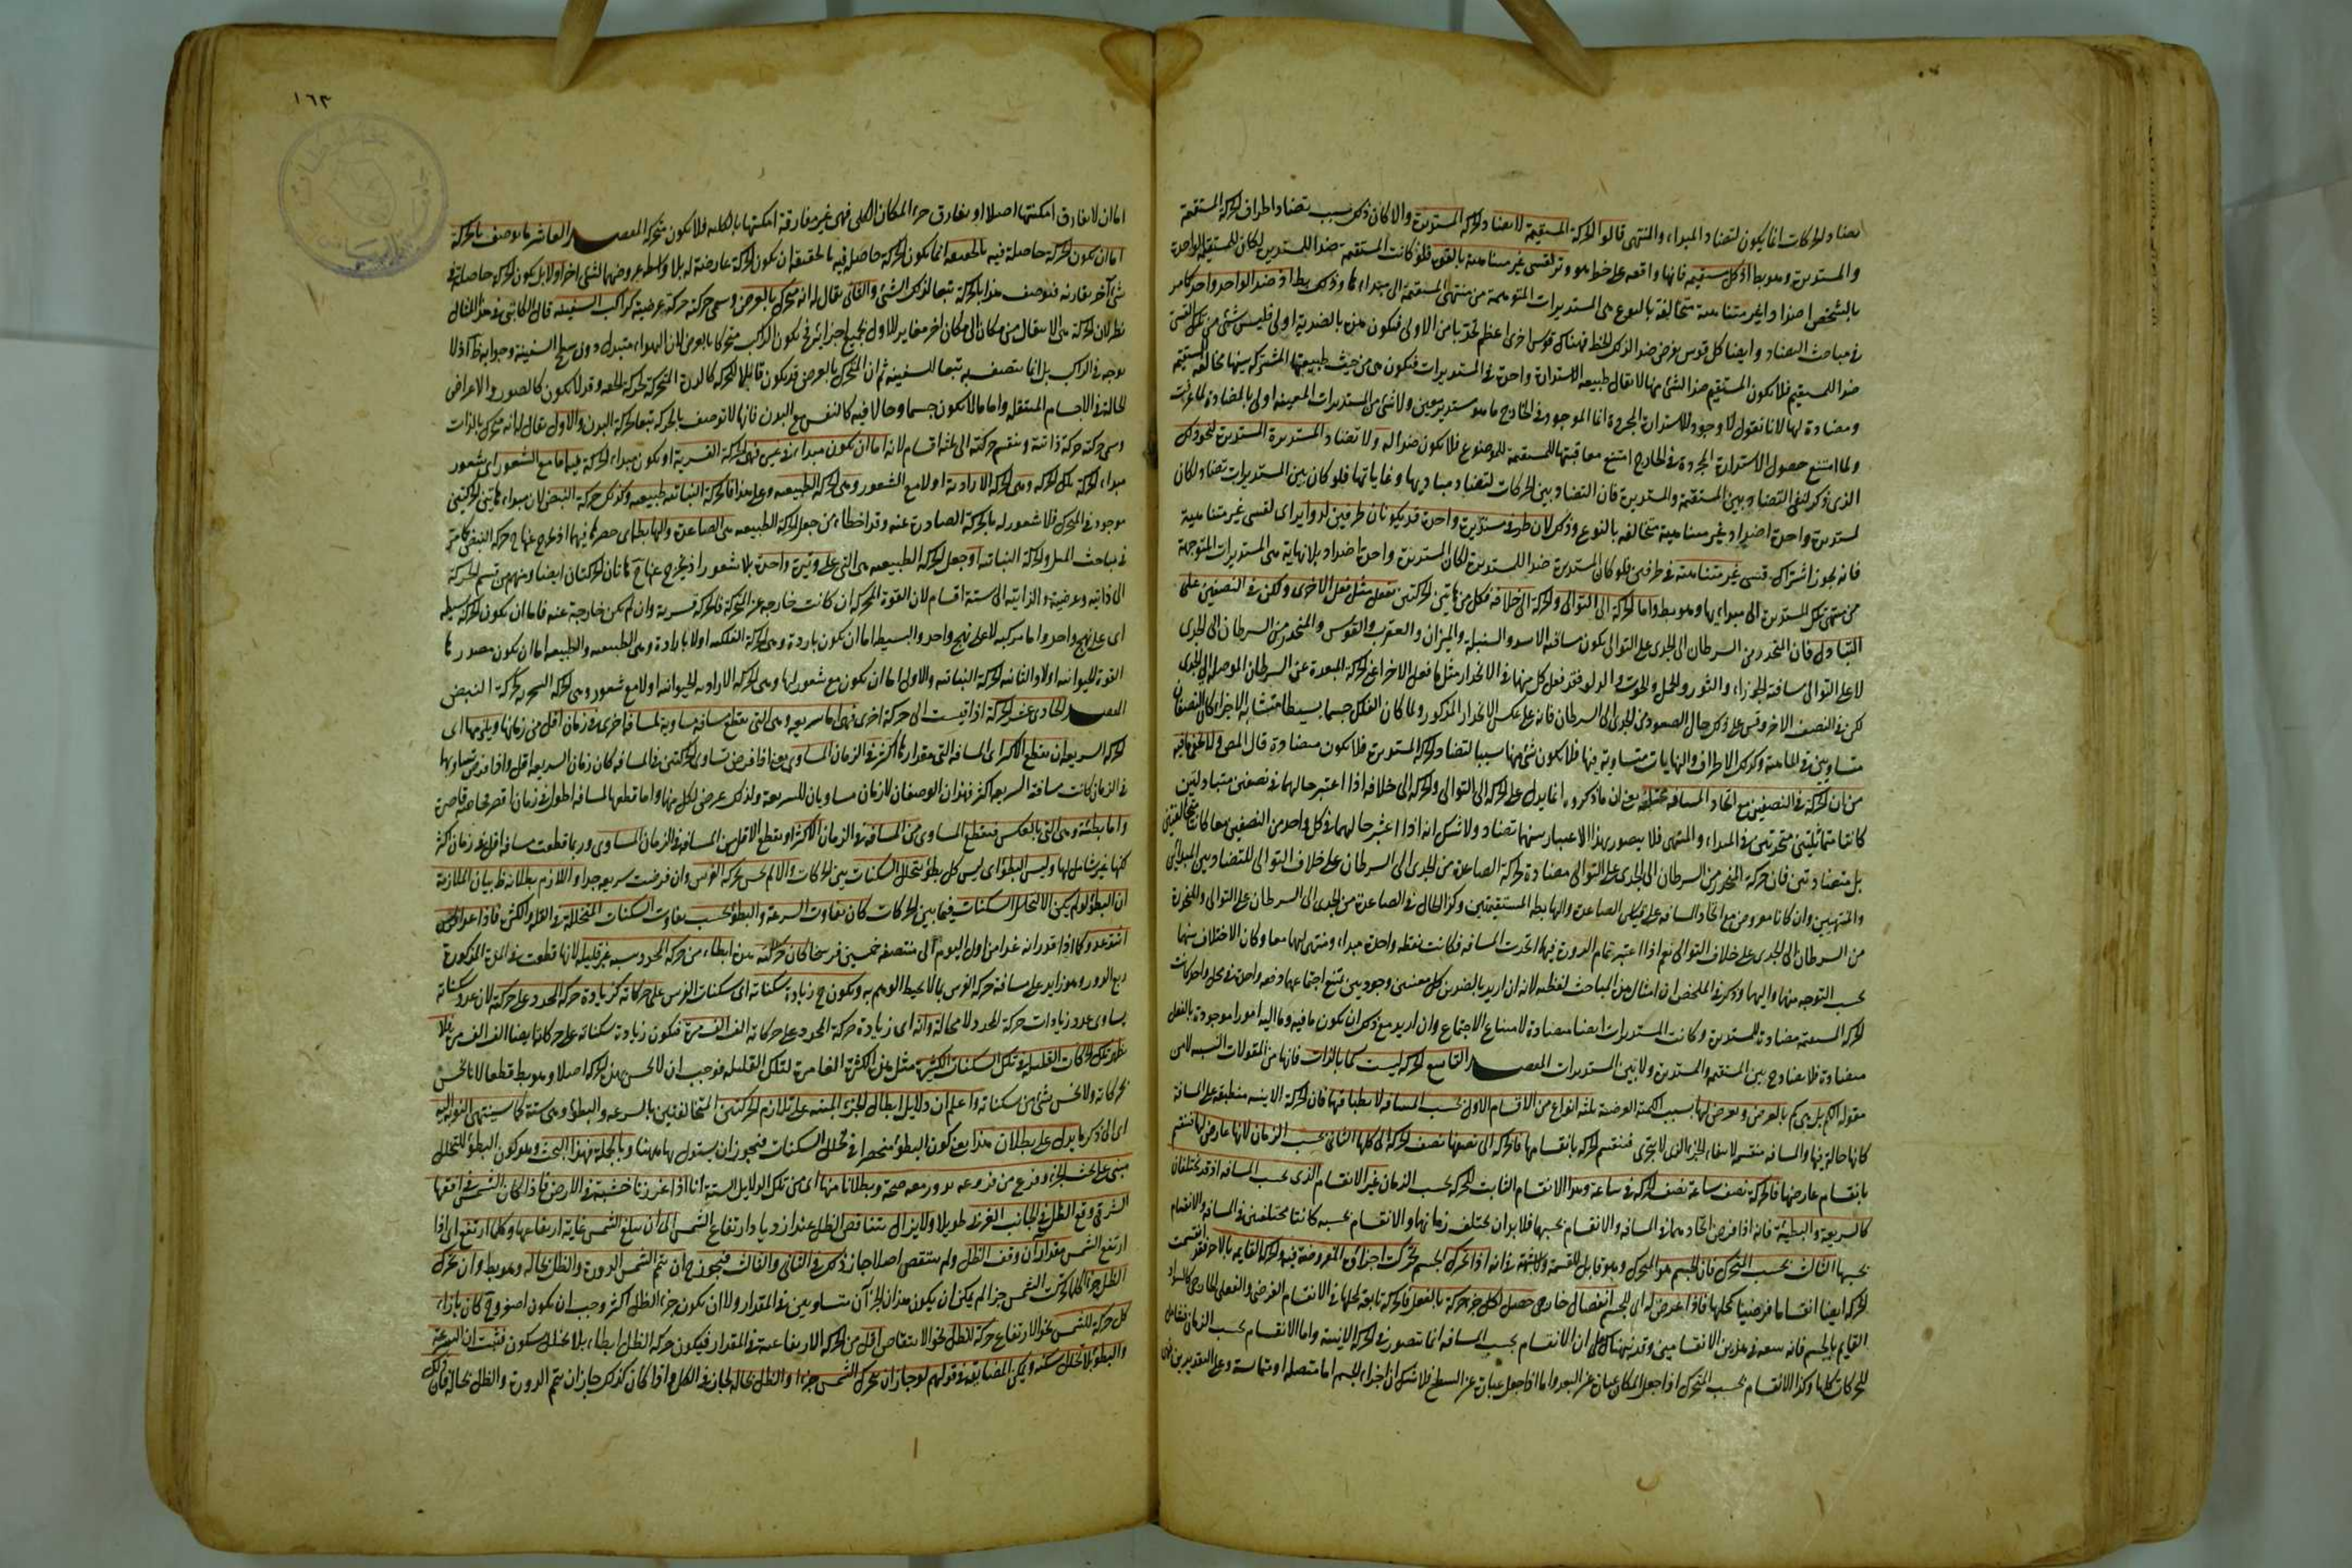 تضاد الحركات انما يكون لتضاد المبداء والمنتهى قالوا الحركة المستقيمة لا تضاد الحركة المستديرة والا لكان ذلك بسبب تضاد اطراف الحركة المستقيمة
والمستديرة وهو بط اذ كل مستقيم فانها واقعه على خط هو وتر لقسى غير متناهية بالقوة فلو كانت المستقيمة ضدا للمستديرة لكان للمستقيمة الواحدة
بالشخص اضدادا غير متناهية متخالفة بالنوع هى المستديرات المتوهمة من منتهى المستقيمة الى مبدائها وذلك بط اذ ضد الواحد واحد كما مر
فى مباحث التضاد وايضا كل قوس يفرض ضدا لذلك الخط فهناك قوس اخرى اعظم تحدبا من الاولى فتكون هذه بالضدية اولى فليس شئ من تلك القسى
ضدا للمستقيم فلا يكون المستقيم ضدا لشئ منها لا يقال طبيعة الاستدارة واحدة فى المستديرات فتكون هى من حيث طبيعتها المشتركة بينها مخالفة للمستقيمة
ومضادة لها لانا نقول لا وجود للاستدارة المجردة انما الموجود فى الخارج ما هو مستدير معين ولا شئ من المستديرات المعينة اولى بالمضادة لما عرفت
ولما امتنع حصول الاستدارة المجردة فى الخارج امتنع معاقبتها للمستقيمة للموضوع فلا يكون ضدا له ولا تضاد المستديرة المستديرة لنحو ذلك
الذى ذكر لنفى التضاد بين المستقيمة والمستديرة فان التضاد بين الحركات لتضاد مباديها وغاياتها فلو كان بين المستديرات تضاد لكان
لمستديرة واحدة اضداد غير متناهية متخالفة بالنوع وذلك لان طرفى مستديرة واحدة قد يكونان طرفين لدوائر اى لقسى غير متناهية
فانه يجوز اشتراك قسى غير متناهية فى طرفين فلو كان المستديرة ضدا للمستديرة لكان المستديرة واحدة اضداد بلا نهاية هى المستديرات المتوجهة
من منتهى تلك المستديرة الى مبدائها وهو بط واما الحركة الى التوالى والحركة الى خلافه فكل من هاتين الحركتين تفعل مثل فعل الاخرى ولكن فى النصفين على
التبادل فان المنحدر من السرطان الى الجدى على التوالى يكون مسافته الاسد والسنبلة والميزان والعقرب والقوس والمنحدر من السرطان الى الجدى
لا على التوالى مسافته الجوزاء والثور والحمل والحوت والدلو فقد فعل كل منهما فى الانحدار مثل ما فعل الاخر اعنى الحركة المبعدة عن السرطان الموصلة الى الجدى
لكن فى النصف الاخر وقس على ذلك حال الصعود من الجدى الى السرطان فانه على عكس الانحدار المذكور ولما كان الفلك جسما بسيطا متشابه الاجزاء كان النصفان
متساويين فى الماهية وكذلك الاطراف والنهايات متساوية فيها فلا يكون شئ منها سببا لتضاد الحركة المستديرة فلا يكون متضادة قال المص ولا يخفى ما فيه
من ان الحركة فى النصفين مع اتحاد المسافة مختلفة يعنى ان ما ذكروه انما يدل على الحركة الى التوالى والحركة الى خلافه اذا اعتبر حالهما فى نصفين متبادلين
كانتا متماثلتين متحدتين فى المبداء والمنتهى فلا يتصور بهذا الاعتبار بينهما تضاد ولا شك انه اذا اعتبر حالهما فى كل واحد من النصفين معا كانتا متخالفتين
بل متضادتين فان حركة المنحدر من السرطان الى الجدى على التوالى مضادة لحركة الصاعد من الجدى الى السرطان على خلاف التوالى للتضاد بين المبدائين
والمنتهيين وان كانا مفروضين مع اتحاد المسافة على قياس الصاعدة والهابطة المستقيمتين وكذا الحال فى الصاعدة من الجدى الى السرطان على التوالى والمنحدرة
من السرطان الى الجدى على خلاف التوالى نعم اذا اعتبر تمام الدورة فيهما اتحدت المسافة فكانت نقطة واحدة مبداء ومنتهى لهما معا وكان الاختلاف بينهما
بحسب التوجه منها واليها وذكر فى الملخص ان امثال هذه المباحث لفظية لانه ان اريد بالضدين كل معنيين وجوديين يمتنع اجتماعهما دفعة واحدة فى محل واحد كانت
الحركة المستقيمة مضادة للمستديرة وكانت المستديرات ايضا متضادة لامتناع الاجتماع وان اريد مع ذلك ان يكون ما فيه وما اليه امورا موجودة بالفعل
متضادة فلا تضاد ح بين المستقيمة والمستديرة ولا بين المستديرات المقصد التاسع الحركة ليست كما بالذات فانها من المقولات النسبية لا من
مقولة الكم بل هى كم بالعرض ويعرض لها بسبب الكمية العرضية ثلثة انواع من الاقسام الاول بحسب المسافة لانطباقها فان الحركة الاينية منطبقة على المسافة
كانها حالة فيها والمسافة منقسمة لانتفاء الجزء الذى لا يتجزى فتنقسم الحركة بانقسامها فالحركة الى نصفها نصف الحركة الى كلها الثانى بحسب الزمان لانها عارض لها فتنقسم
بانقسام عارضها فالحركة نصف ساعة نصف الحركة فى ساعة وهذا الانقسام الثابت للحركة بحسب الزمان غير الانقسام الذى بحسب المسافة اذ قد يختلفان
كالسريعة والبطيئة فانه اذا فرض اتحادهما فى المسافة والانقسام بحسبها فلا بد ان يختلف زمانهما والانقسام بحسبه كانتا مختلفتين فى المسافة والانقسام
بحسبها الثالث بحسب المتحرك فان الجسم هو المتحرك وهو قابل للقسمة ولا شبهة فى انه اذا تحرك الجسم تحركت اجزاؤه المفروضة فيه والحركة القائمة بالاخر فقد انقسمت
الحركة ايضا انقساما فرضيا كمحلها فاذا عرض له اى للجسم انفصال خارجى حصل لكل جزء حركة بالفعل فالحركة تابعة لمحلها فى الانقسام الفرضى والفعلى الخارجى كالسواد
القايم بالجسم فانه يتبعه فى هذين الانقسامين وقد نبهناك على ان الانقسام بحسب المسافة انما تتصور فى الحركة الاينية واما الانقسام بحسب الزمان فشامل
للحركات كلها وكذا الانقسام بحسب المتحرك اذا جعل المكان عبارة عن البعد واما اذا جعل عبارة عن السطح فلا شك ان اجزاء الجسم اما متصلة او متماسة وعلى التقديرين
١٦٣
اما ان لا تفارق امكنتها اصلا او تفارق جزء المكان الكلى فهى غير مفارقة امكنتها بالكلية فلا يكون متحركة المقصد العاشر ما يوصف بالحركة
اما ان تكون الحركة حاصلة فيه بالحقيقة انما يكون الحركة حاصلة فيه بالحقيقة ان يكون الحركة عارضة له بلا واسطة عروضها لشئ اخر او لا بل يكون الحركة حاصلة فى
شئ آخر يقارنه فتوصف هذا بالحركة تبعا لذلك الشئ والثانى يقال له انه متحرك بالعرض وتسمى حركته حركة عرضية كراكب السفينة قال الكاتبى فى هذا المثال
نظر لان الحركة هى الانتقال من مكان الى مكان اخر مغاير للاول بجميع اجزائه فح يكون الراكب متحركا بالعرض لان الهواء متبدل دون سطح السفينة وجوابه ظ اذ لا
توجه فى الراكب بل انما يتصف به تبعا للسفينة ثم ان المتحرك بالعرض قد يكون قابلا للحركة كالدرة المتحركة لحركة الحقة وقد لا يكون كالصور والاعراض
الحالة فى الاجسام المنتقلة واما ما لا يكون جسما وحالا فيه كالنفس مع البدن فانها لا توصف بالحركة تبعا لحركة البدن والاول يقال له انه متحرك بالذات
وتسمى حركته حركة ذاتية وتنقسم حركته الى ثلثة اقسام لانه اما ان يكون مبداء فى غيره فهى الحركة القسرية او يكون مبداء الحركة فيه اما مع الشعور اى شعور
مبداء الحركة بتلك الحركة وهى الحركة الارادية او لا مع الشعور وهى الحركة الطبيعية وعلى هذا فالحركة النباتية طبيعية وكذلك حركة النبض لان مبداء هاتين الحركتين
موجود فى المتحرك فلا شعور له بالحركة الصادرة عنه وقد اخطاء من جعل الحركة الطبيعية هى الصاعدة والهابطة اى حصرها فيهما اذ تخرج عنها ح حركة النبض كما مر
فى مباحث الميل والحركة النباتية او جعل الحركة الطبيعية هى التى على وتيرة واحدة بلا شعور اذ يخرج عنها ح هاتان الحركتان ايضا ومنهم من قسم الحركة
الى ذاتية وعرضية والذاتية الى ستة اقسام لان القوة المحركة ان كانت خارجة عن المتحركة فالحركة قسرية وان لم يكن خارجة عنه فاما ان تكون الحركة بسيطة
اى على نهج واحد واما مركبة لا على نهج واحد والبسيطة اما ان تكون بارادة وهى الحركة الفلكية او لا بارادة وهى الطبيعية والطبيعية اما ان يكون مصدرها
القوة الحيوانية او لا والثانية الحركة النباتية والاول اما ان تكون مع شعور بها وهى الحركة الارادية الحيوانية او لا مع شعور وهى الحركة التسخيرية كحركة النبض
المقصد الحادى عشر الحركة اذا قيست الى حركة اخرى فهى اما سريعة وهى التى تقطع مسافة مساوية لمسافة اخرى فى زمان اقل من زمانها ويلزمها اى
الحركة السريعة ان تقطع الاكثر اى المسافة التى مقدارها اكثر فى الزمان المساوى يعنى اذا فرض تساوى الحركتين فى المسافة كان زمان السريعة اقل واذا فرض تساويهما
فى الزمان كانت مسافة السريعة اكثر فهذان الوصفان لازمان مساويان للسريعة ولذلك عرض لكل منهما واما قطعها لمسافة اطول فى زمان اقصر فخاصة قاصرة
واما بطيئة وهى التى بالعكس فتقطع المساوى من المسافة فى الزمان الاكثر او تقطع الاقل من المسافة فى الزمان المساوى وربما قطعت مسافة اقل فى زمان اكثر
لكنها غير شاملة لها وليس البطؤ اى ليس كل بطؤ لتخلل السكنات بين الحركات والا لم تحس بحركة الفرس وان فرضت سريعة جدا واللازم بطلانه ظ بيان الملازمة
ان البطؤ لو لم يكن الا لتخلل السكنات فيما بين الحركات كان تفاوت السرعة والبطؤ بحسب تفاوت السكنات المتخللة فى القلة والكثرة فاذا عدا الفرس
اشد عدوه كما اذا قدر انه غدا من اول اليوم الى منتصفه خمسين فرسخا كان حركته هذه ابطاء من حركة المحدد بنسبة غير قليلة لانها قطعت فى المدة المذكورة
ربع الدور وهو زايد على مسافة حركة الفرس بما لا يحيط الوهم به ويكون ح زيادة سكناته اى سكنات الفرس على حركاته كزيادة حركة المحدد على حركته لان عدد سكناته
يساوى عدد زيادات حركة المحدد لا محالة وانه اى زيادة حركة المحدد على حركاته الف الف مرة فتكون زيادة سكناته على حركاته ايضا الف الف مرة فلا
تظهر تلك الحركات القليلة فى تلك السكنات الكثيرة مثل هذه الكثرة الغامرة لتلك القليلة فوجب ان لا تحس بهذه الحركة اصلا وهو بط قطعا لانا نحس
بحركاته ولا نحس شئ من سكناته واعلم ان دلايل ابطال الجزء المبنية على تلازم الحركتين المتخالفتين بالسرعة والبطؤ وهى ستة كما سينتهى النوبة اليه
اى الى ذكرها يدل على بطلان هذا يعنى كون البطؤ منحصرا فى تخلل السكنات فيجوز ان يستدل بها ههنا وبالجملة فهذا البحث وهو كون البطؤ للتخلل
مبنى على بحث الجزء وفرع من فروعه يدور معه صحة وبطلانا منها اى من تلك الدلايل الستة انا اذا غرزنا خشبة فى الارض فاذا كان الشمس فى افقها
الشرقى وقع الظل فى الجانب الغربى طويلا ولا يزال يتناقص الظل عند ازدياد ارتفاع الشمس الى ان يبلغ الشمس غاية ارتفاعها وكلما ارتفع اى اذا
ارتفع الشمس مقدارا ان وقف الظل ولم ينتقص اصلا جاز ذلك فى الثانى والثالث فيجوز ح ان يتم الشمس الدورة والظل بحاله وهو بط وان تحرك
الظل جزءا كلما تحركت الشمس جزءا لم يكن ان يكون هذان الجزآن متساويين فى المقدار ولا ان يكون جزء الظل اكثر وجب ان يكون اصغر وح كان بازاء
كل حركة للشمس نحو الارتفاع حركة للظل نحو الانتقاص اقل من الحركة الارتفاعية فى المقدار فيكون حركة الظل ابطاء بلا تخلل سكون فثبت ان السرعة
والبطؤ بلا تخلل سكنة ويمكن المضايقة فى قولهم لو جاز ان تتحرك الشمس جزءا والظل بحاله لجاز فى الكل واذا كان كذلك جاز ان يتم الدورة والظل بحاله فان ذلك